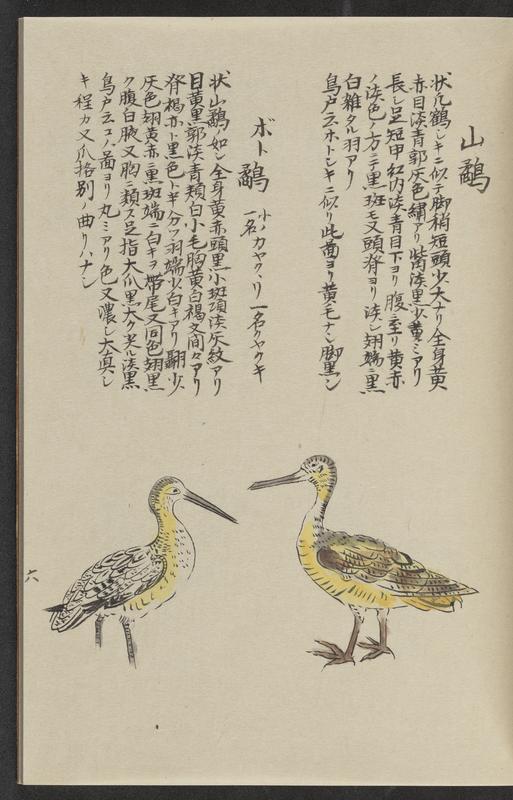 山鷸
状凡鶴シキニ似テ脚稍短頭少大ナリ全身黄
赤目淡青郭灰色繍アリ觜淡黒少黄ミアリ
長シ足短甲紅内淡青目下ヨリ腹ニ至リ黄赤
ノ淡色ノ方ニテ黒斑モ又頭脊ヨリ淡シ翅端ニ黒
白雑タル羽アリ
鳥戸云ホトシキニ似リ此畨ヨリ黄毛ナシ脚黒シ
ボト鷸
小ノカヤクヽリ一名クヤクキ
一名
状山鷸ノ如シ全身黄赤頭黒小斑項淡灰紋アリ
目黄黒郭淡青頬白小毛胸黄白褐文間々アリ
脊褐赤ト黒色トギノ分ツ羽端少白キアリ翮少
灰色翅黄赤ニ黒斑端ニ白キヲ帯尾又同色翅黒
ク腹白腋又胸ニ類ス足指大爪黒大ク実ハ淡黒
鳥戸云コノ畨ヨリ丸ミアリ色又濃シ大真シ
キ程カ又爪格別ニ曲リハナシ
六